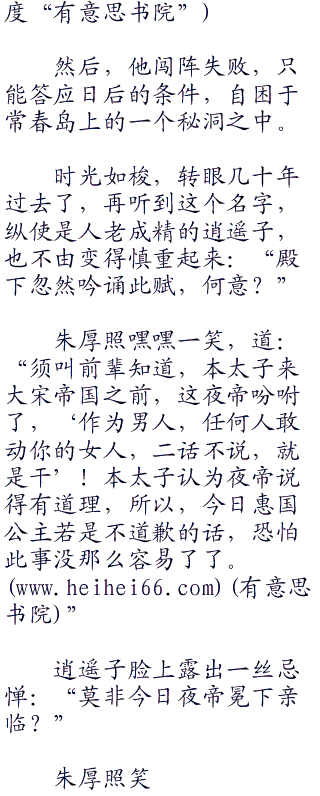 度“有意思书院”)
然后，他闯阵失败，只
能答应日后的条件，自困于
常春岛上的一个秘洞之中。
时光如梭，转眼几十年
过去了，再听到这个名字，
纵使是人老成精的逍遥子，
也不由变得慎重起来：“殿
下忽然吟诵此赋，何意？”
朱厚照嘿嘿一笑，道：
“须叫前辈知道，本太子来
大宋帝国之前，这夜帝吩咐
了，‘作为男人，任何人敢
动你的女人，二话不说，就
是干’！本太子认为夜帝说
得有道理，所以，今日惠国
公主若是不道歉的话，恐怕
此事没那么容易了了。
(www.heihei66.com)(有意思
书院)”
逍遥子脸上露出一丝忌
惮：“莫非今日夜帝冕下亲
临？”
朱厚照笑